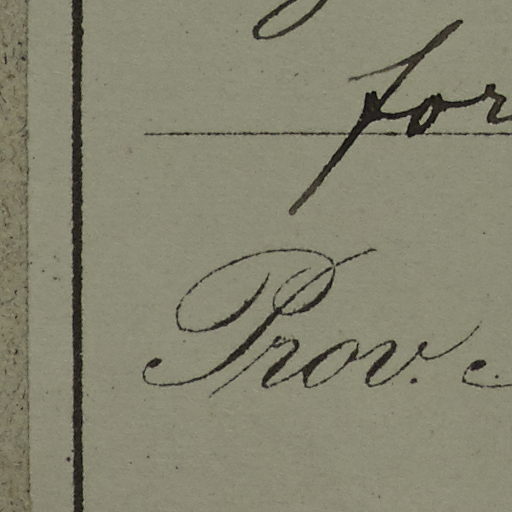 for
Prov.